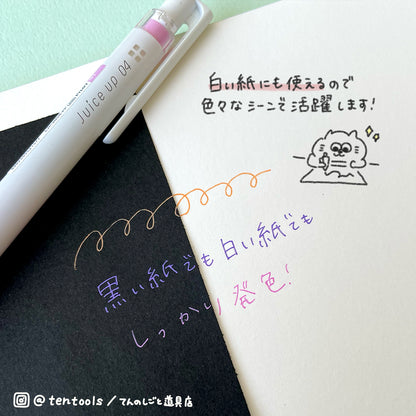 Juice up 04
白い紙にも使えるので
色々なシーンで活躍します!
黒い紙でも白い紙でも
しっかり発色!
@tentools/てんのしごと道具店